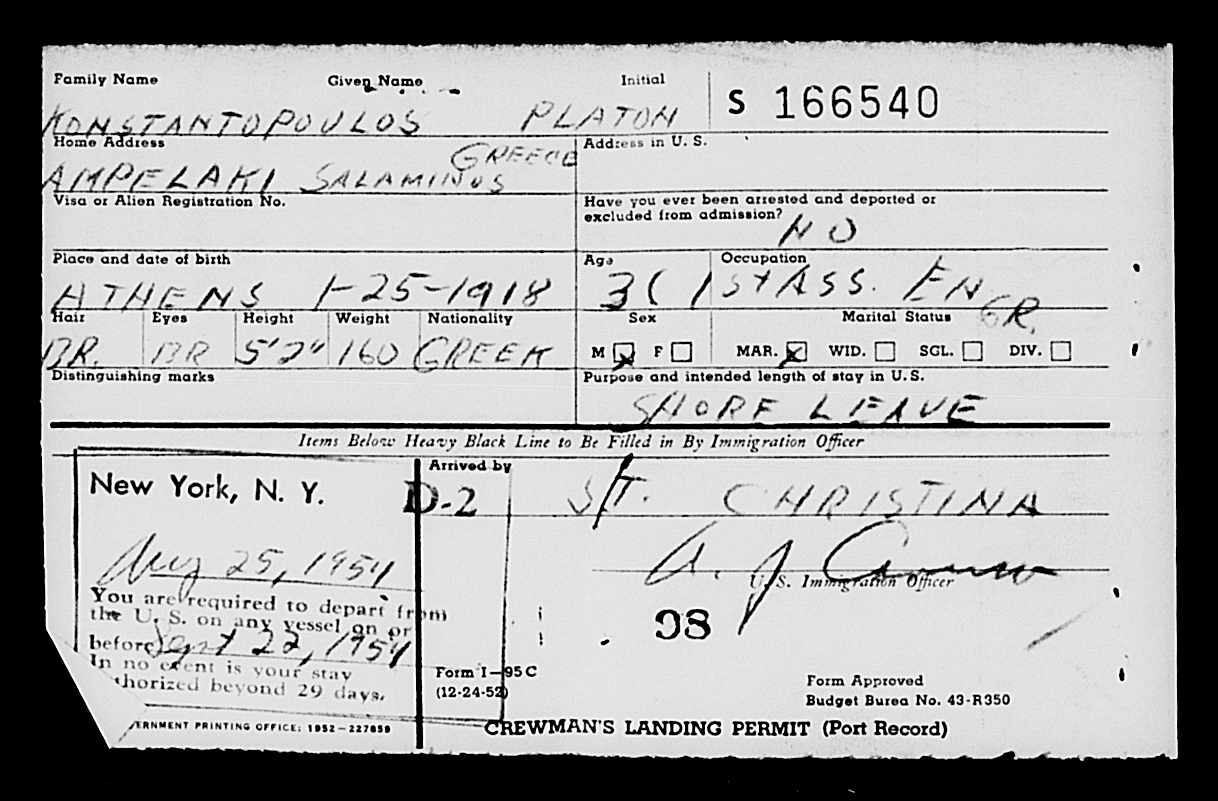 Family Name Given Name Initial
KONSTANTOPOULOS PLATON S 166540
Home Address
AMPELAKI SALAMINOS GREECE
Address in U. S.
Visa or Alien Registration No.
Have you ever been arrested and deported or
excluded from admission?
NO
Place and date of birth
ATHENS 1-25-1918
Age Occupation
36 1st ASS. ENGR.
Hair Eyes Height Weight Nationality
BR. BR 5'2" 160 GREEK
Sex Marital Status
M F MAR. WID. SGL. DIV.
Distinguishing marks
Purpose and intended length of stay in U. S.
SHORE LEAVE
Items Below Heavy Black Line to Be Filled in By Immigration Officer
New York, N. Y.
D-2
Aug 25, 1954
You are required to depart from
the U. S. on any vessel on or
before Sept 22, 1954
In no event is your stay
thorized beyond 29 days.
ERNMENT PRINTING OFFICE: 1952—227859
Arrived by
S/T. CHRISTINA
A. J.
U. S. Immigration Officer
98
Form I—95 C
(12-24-52)
Form Approved
Budget Burea No. 43-R350
CREWMAN'S LANDING PERMIT (Port Record)